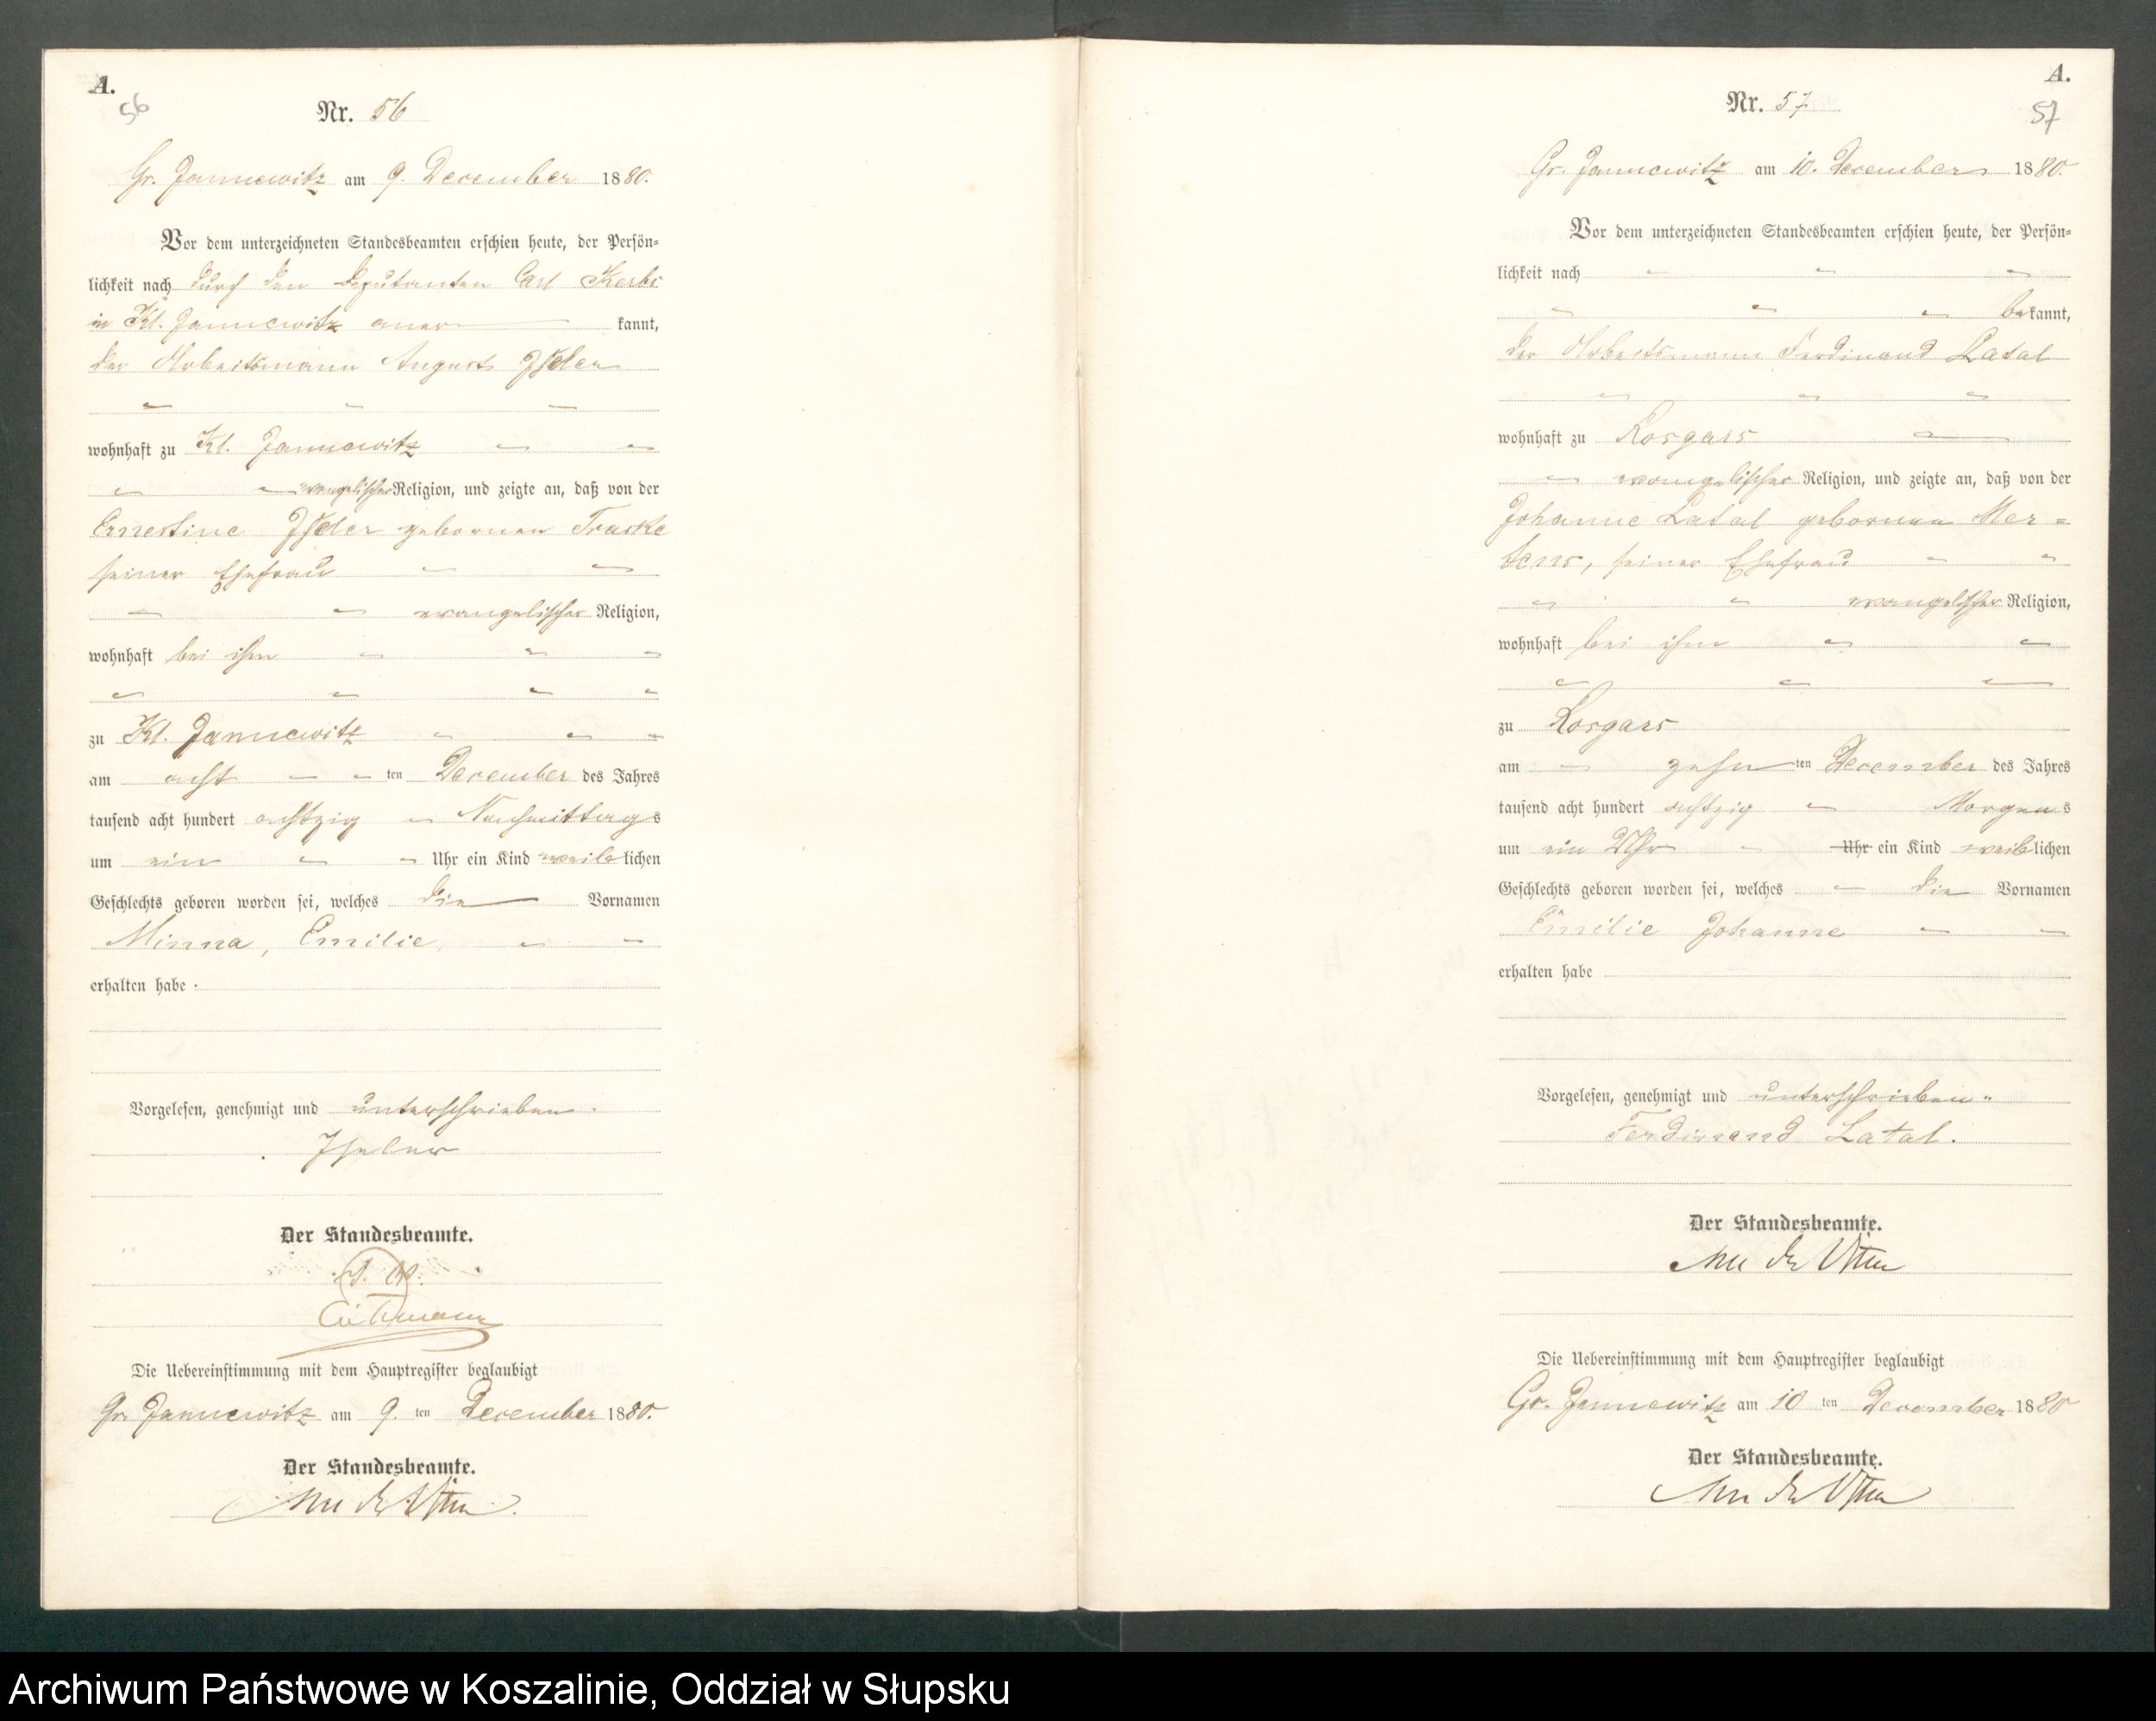 A.
56
Nr. 56
Gr. Jannewitz am 9. December 1880.
Vor dem unterzeichneten Standesbeamten erschien heute, der Persön=
lichkeit nach durch den Deputanten Carl Kerbs
in Kl. Jannewitz aner kannt,
der Arbeitsmann August
wohnhaft zu Kl. Jannewitz
evangelischer Religion, und zeigte an, daß von der
Ernestine gebornen Traske
seiner Ehefrau
evangelischer Religion,
wohnhaft bei ihm
zu Kl. Jannewitz
am acht ten December des Jahres
tausend acht hundert achtzig Nachmittags
um ein Uhr ein Kind weiblichen
Geschlechts geboren worden sei, welches die Vornamen
Minna, Emilie,
erhalten habe.
Vorgelesen, genehmigt und unterschrieben.
Der Standesbeamte.
Die Uebereinstimmung mit dem Hauptregister beglaubigt
Gr. Jannewitz am 9. ten December 1880.
Der Standesbeamte.
A.
57
Nr. 57
Gr. Jannewitz am 10. December 1880.
Vor dem unterzeichneten Standesbeamten erschien heute, der Persön=
lichkeit nach
bekannt,
der Arbeitsmann Ferdinand Latal
wohnhaft zu Rosgars
evangelischer Religion, und zeigte an, daß von der
Johanne Latal gebornen Mer=
tens, seiner Ehefrau
evangelischer Religion,
wohnhaft bei ihm
zu Rosgars
am zehn ten December des Jahres
tausend acht hundert achtzig Morgens
um ein Uhr Uhr ein Kind weiblichen
Geschlechts geboren worden sei, welches die Vornamen
Emilie Johanne
erhalten habe
Vorgelesen, genehmigt und unterschrieben.
Ferdinand Latal.
Der Standesbeamte.
Die Uebereinstimmung mit dem Hauptregister beglaubigt
Gr. Jannewitz am 10 ten December 1880
Der Standesbeamte.
Archiwum Państwowe w Koszalinie, Oddział w Słupsku